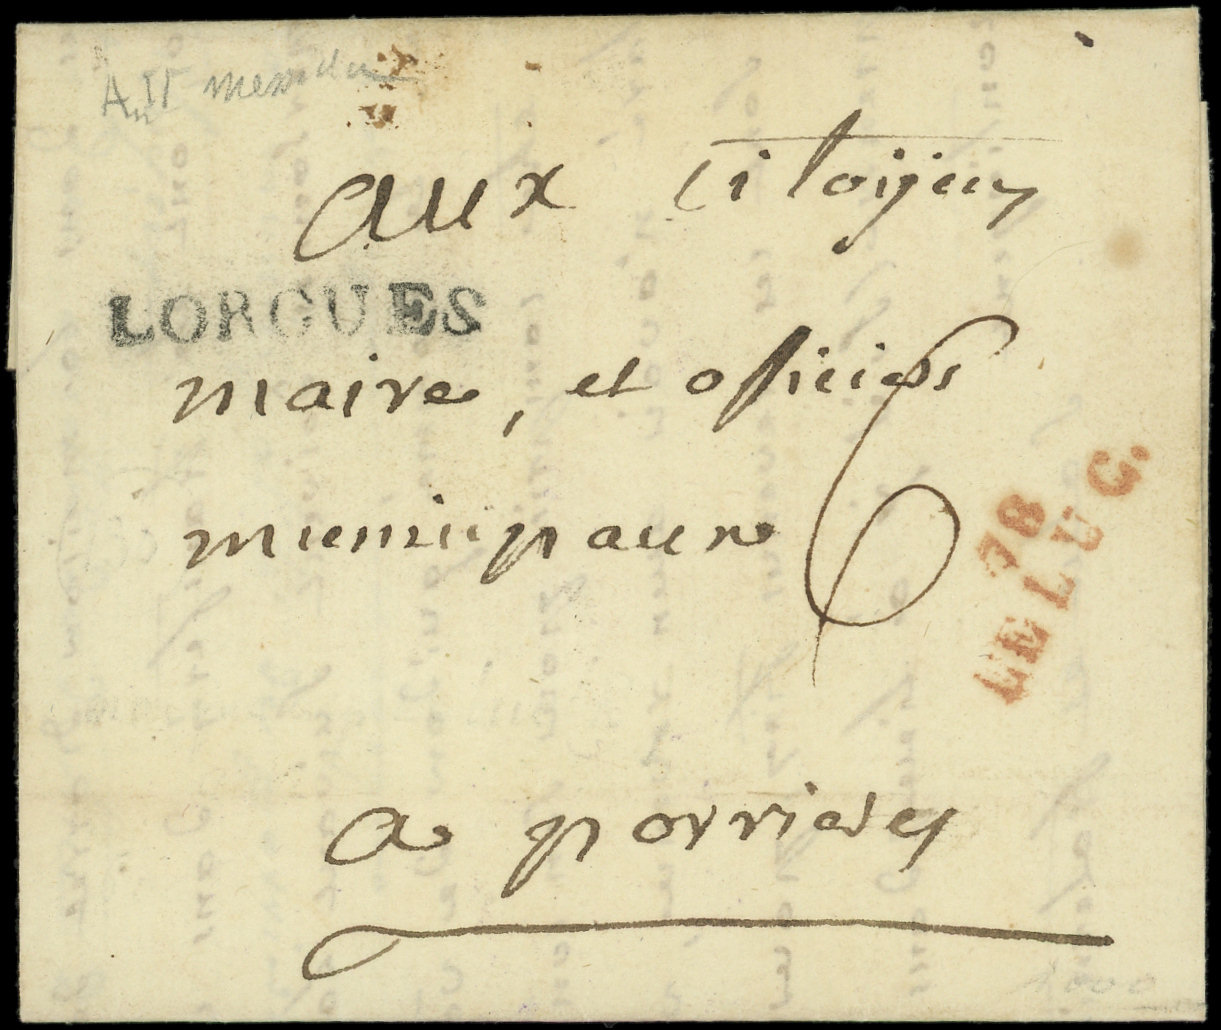 An II messidor
aux Citoyens
LORGUES
maire, et officiers
municipaux
6
78
LE LUC.
a porrieres
1000